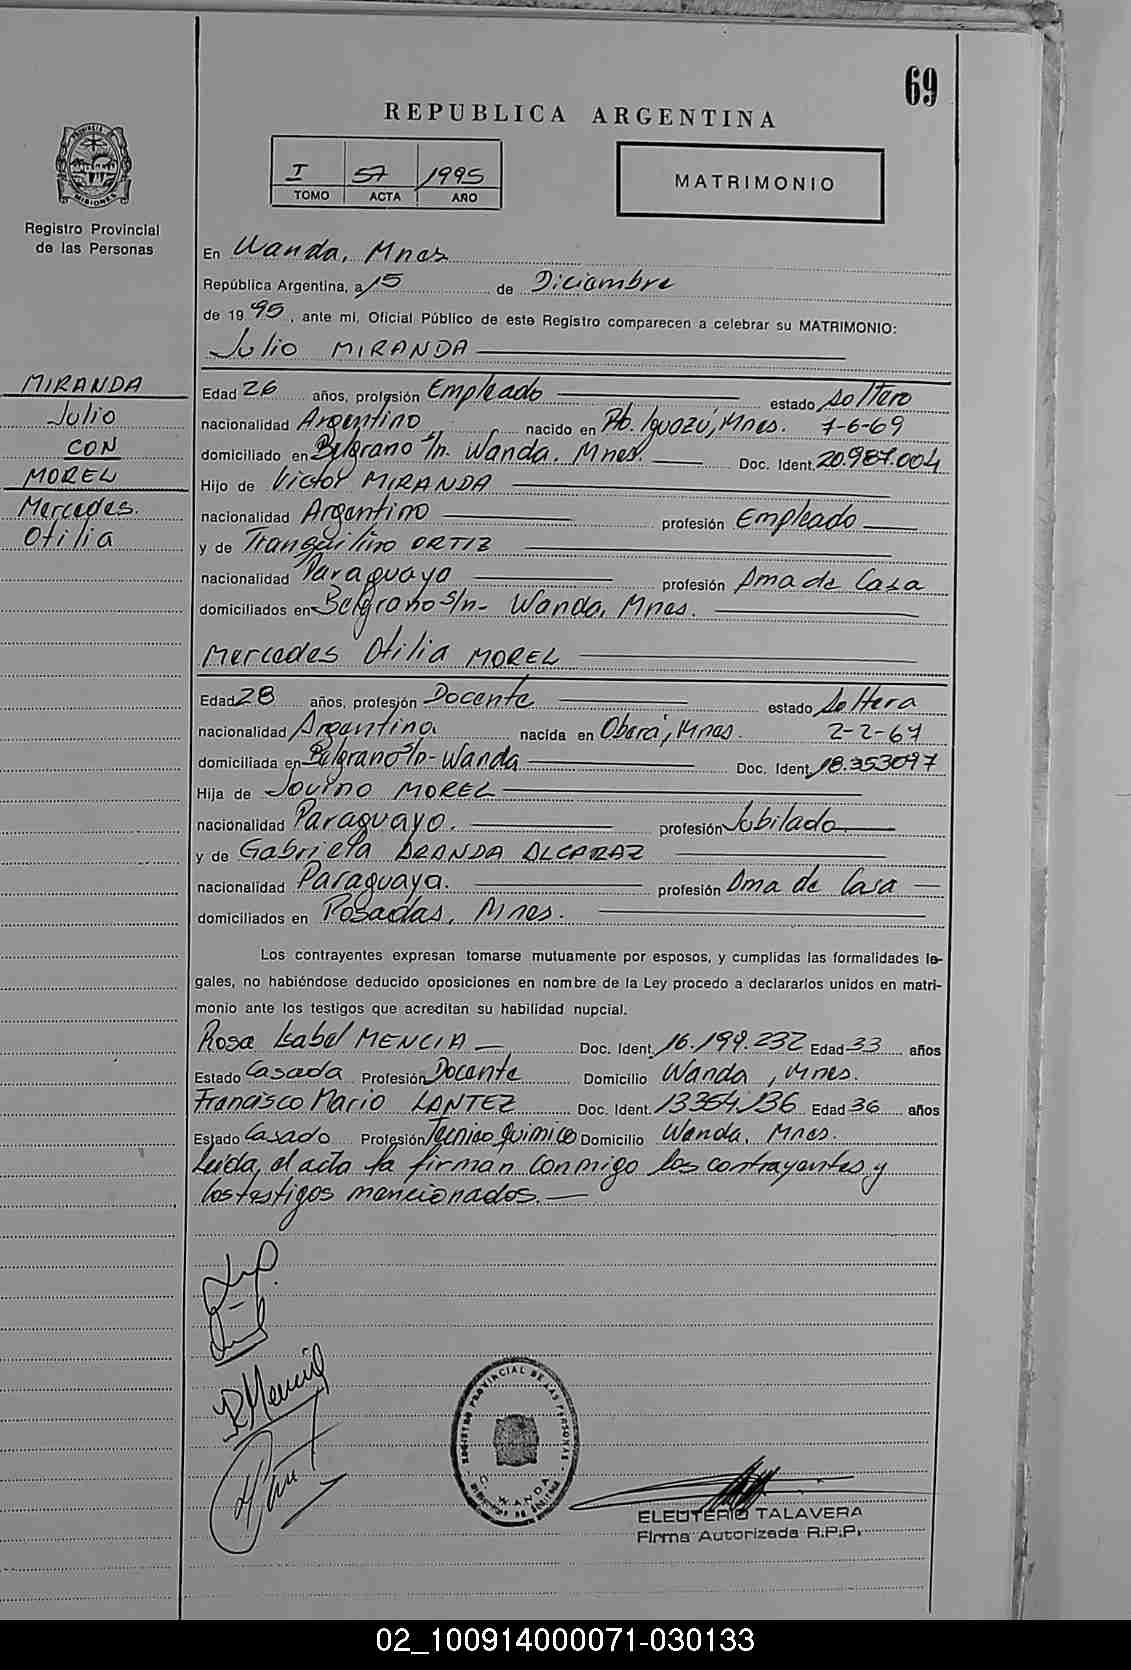 69
REPUBLICA ARGENTINA
I 57 1995
TOMO ACTA AÑO
MATRIMONIO
PROVINCIA DE MISIONES
Registro Provincial
de las Personas
En Wanda, Mnes
República Argentina, a 15 de Diciembre
de 1995, ante mi, Oficial Público de este Registro comparecen a celebrar su MATRIMONIO:
Julio MIRANDA
MIRANDA
Julio
CON
MOREL
Mercedes.
Otilia
Edad 26 años, profesión Empleado estado Soltero
nacionalidad Argentino nacido en Pto. Iguazú, Mnes. 7-6-69
domiciliado en Belgrano s/n. Wanda. Mnes. Doc. Ident. 20.987.004
Hijo de Victor MIRANDA
nacionalidad Argentino profesión Empleado
y de Tranquilino ORTIZ
nacionalidad Paraguaya profesión Ama de Casa
domiciliados en Belgrano s/n- Wanda, Mnes.
Mercedes Otilia MOREL
Edad 28 años, profesión Docente estado Soltera
nacionalidad Argentina. nacida en Oberá, Mnes. 2-2-67
domiciliada en Belgrano s/n- Wanda Doc. Ident. 18.353097
Hija de Jovino MOREL
nacionalidad Paraguayo. profesión Jubilado
y de Gabriela ARANDA ALCARAZ
nacionalidad Paraguaya. profesión Ama de Casa
domiciliados en Posadas, Mnes.
Los contrayentes expresan tomarse mutuamente por esposos, y cumplidas las formalidades le-
gales, no habiéndose deducido oposiciones en nombre de la Ley procedo a declararlos unidos en matri-
monio ante los testigos que acreditan su habilidad nupcial.
Rosa Isabel MENCIA Doc. Ident. 16.199.232 Edad 33 años
Estado Casada Profesión Docente Domicilio Wanda, Mnes.
Francisco Mario LANTEZ Doc. Ident. 13364.136 Edad 36 años
Estado Casado Profesión Tecnico Quimico Domicilio Wanda, Mnes.
Leida, el acta la firman conmigo los contrayentes y
los testigos mencionados.
RMencia
REGISTRO PROVINCIAL DE LAS PERSONAS
WANDA
ELEUTERIO TALAVERA
Firma Autorizada R.P.P.
02_100914000071-030133